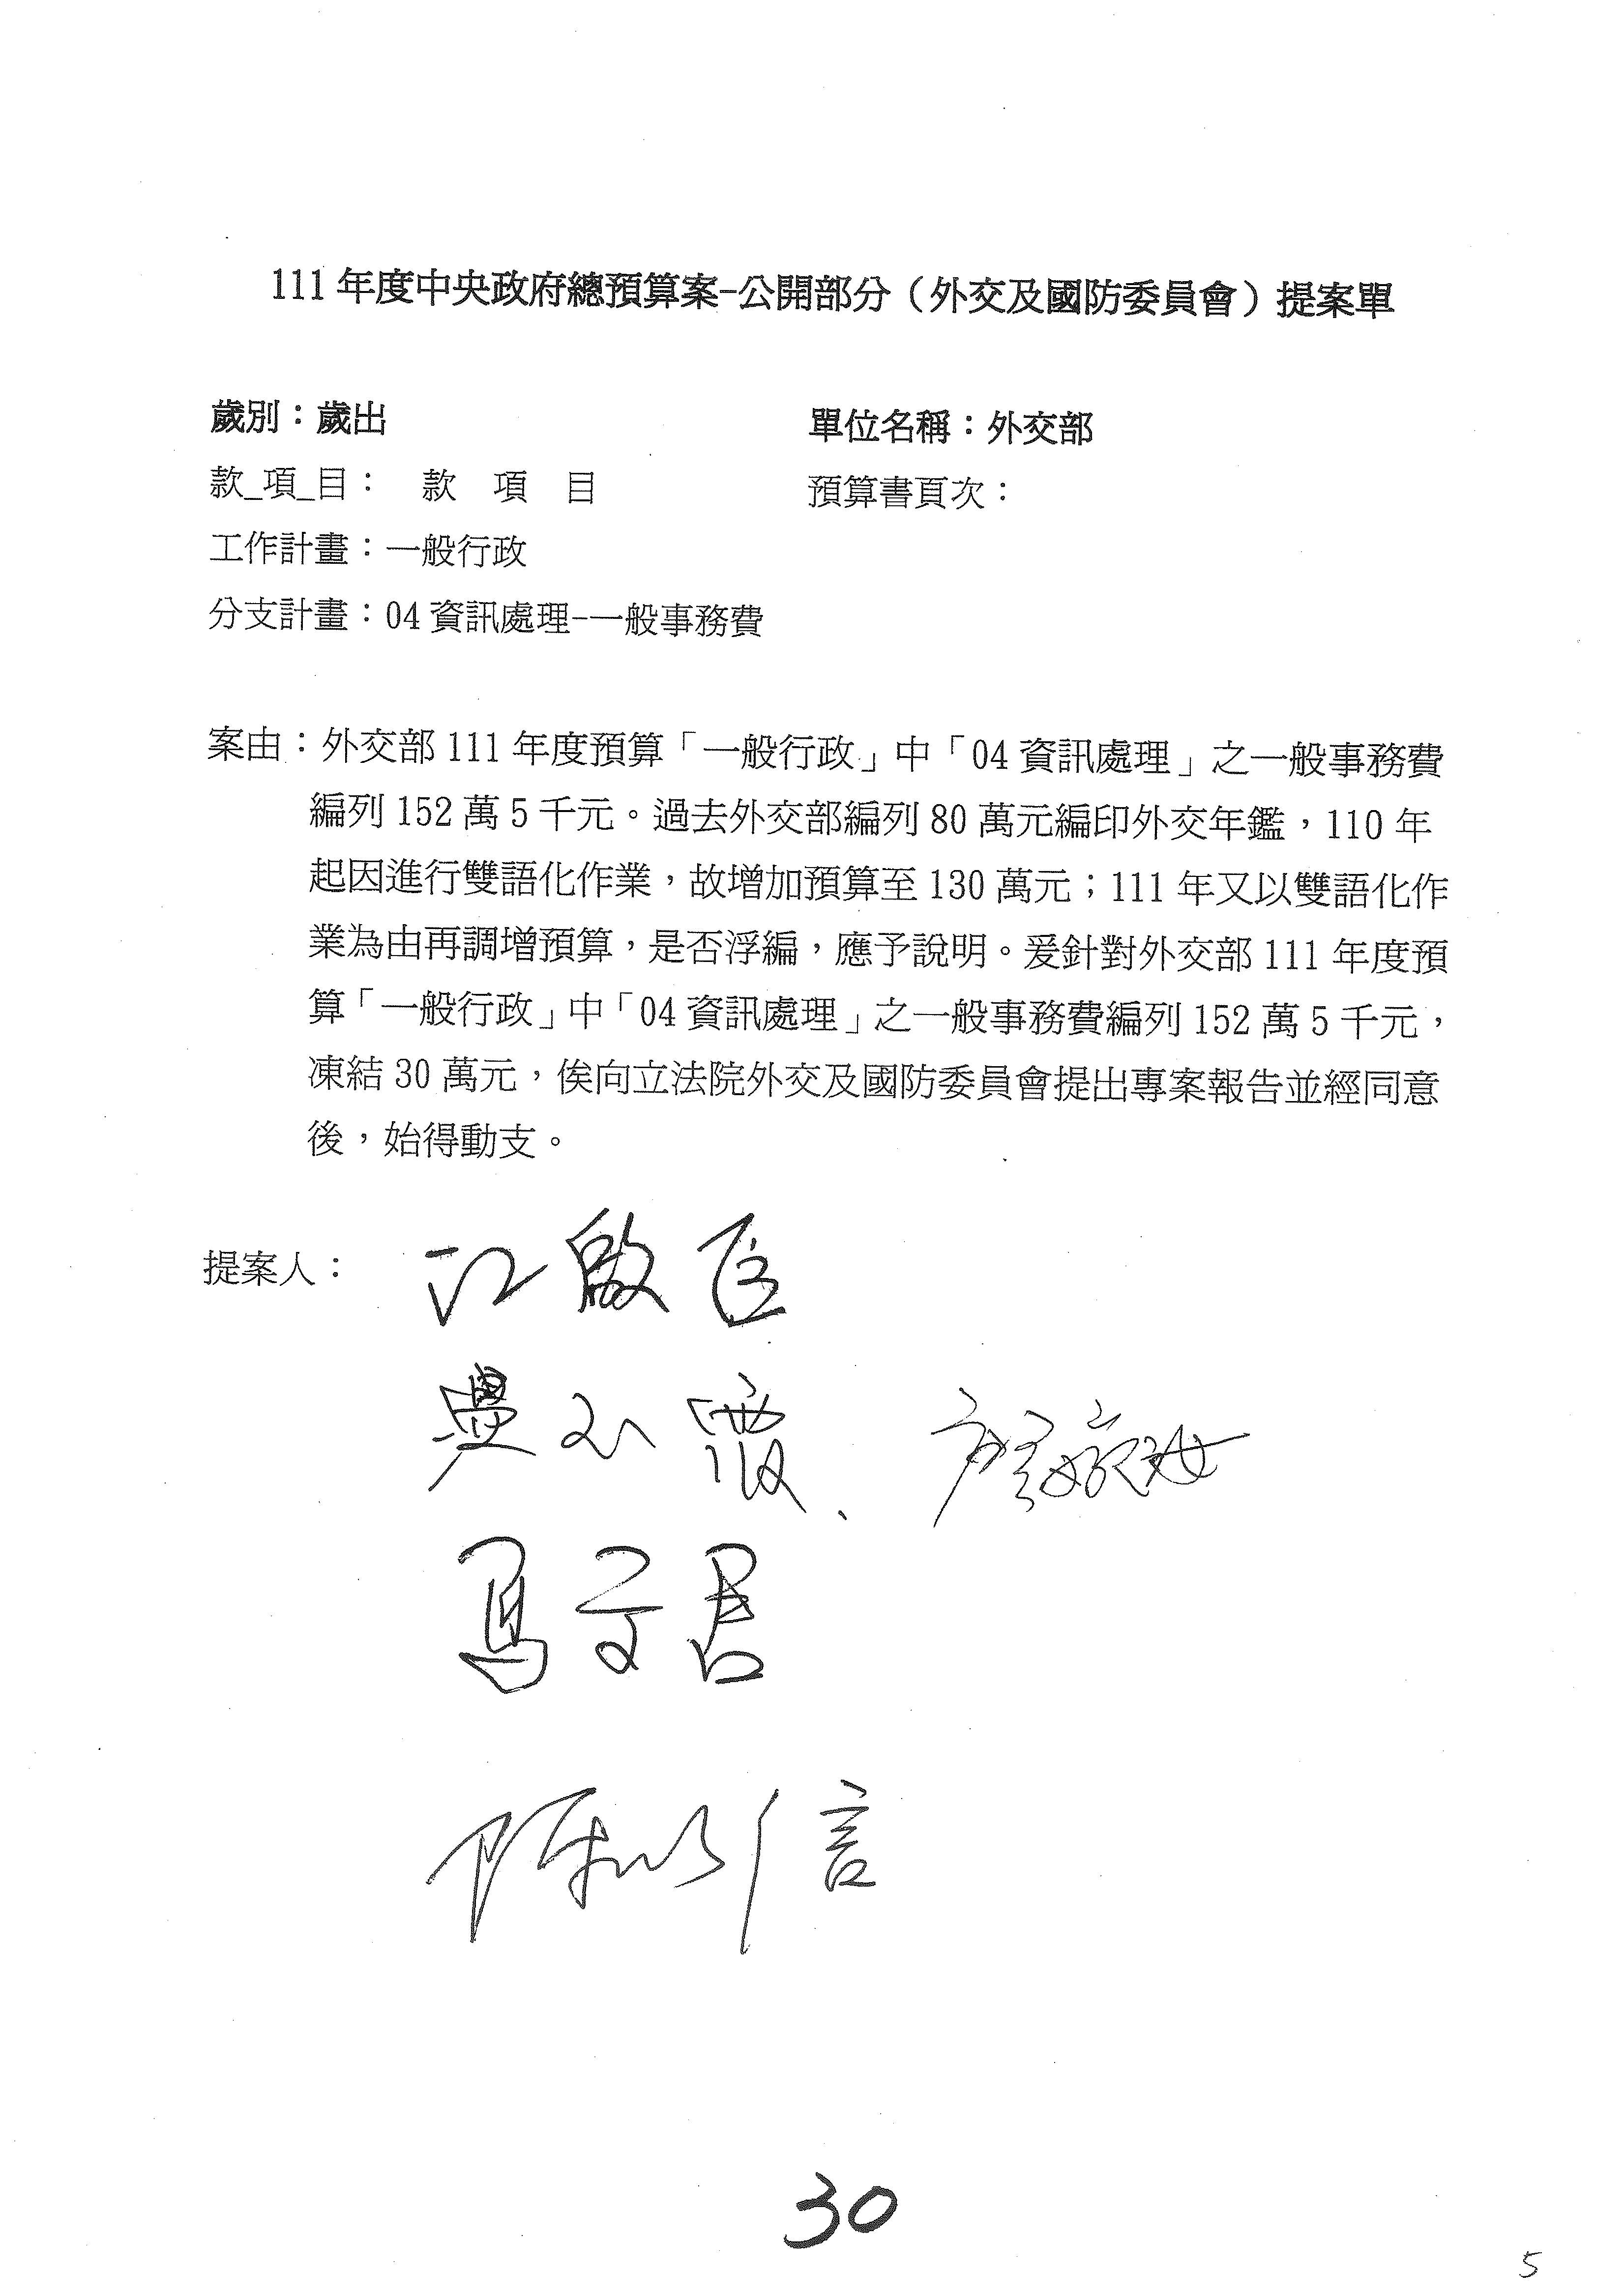 111年度中央政府總預算案-公開部分（外交及國防委員會）提案單
歲別：歲出 單位名稱：外交部
款_項_目： 款 項 目 預算書頁次：
工作計畫：一般行政
分支計畫：04資訊處理-一般事務費
案由：外交部111年度預算「一般行政」中「04資訊處理」之一般事務費
編列152萬5千元。過去外交部編列80萬元編印外交年鑑，110年
起因進行雙語化作業，故增加預算至130萬元；111年又以雙語化作
業為由再調增預算，是否浮編，應予說明。爰針對外交部111年度預
算「一般行政」中「04資訊處理」之一般事務費編列152萬5千元，
凍結30萬元，俟向立法院外交及國防委員會提出專案報告並經同意
後，始得動支。
提案人： 江啟臣
馬文君
陳以信
30
5